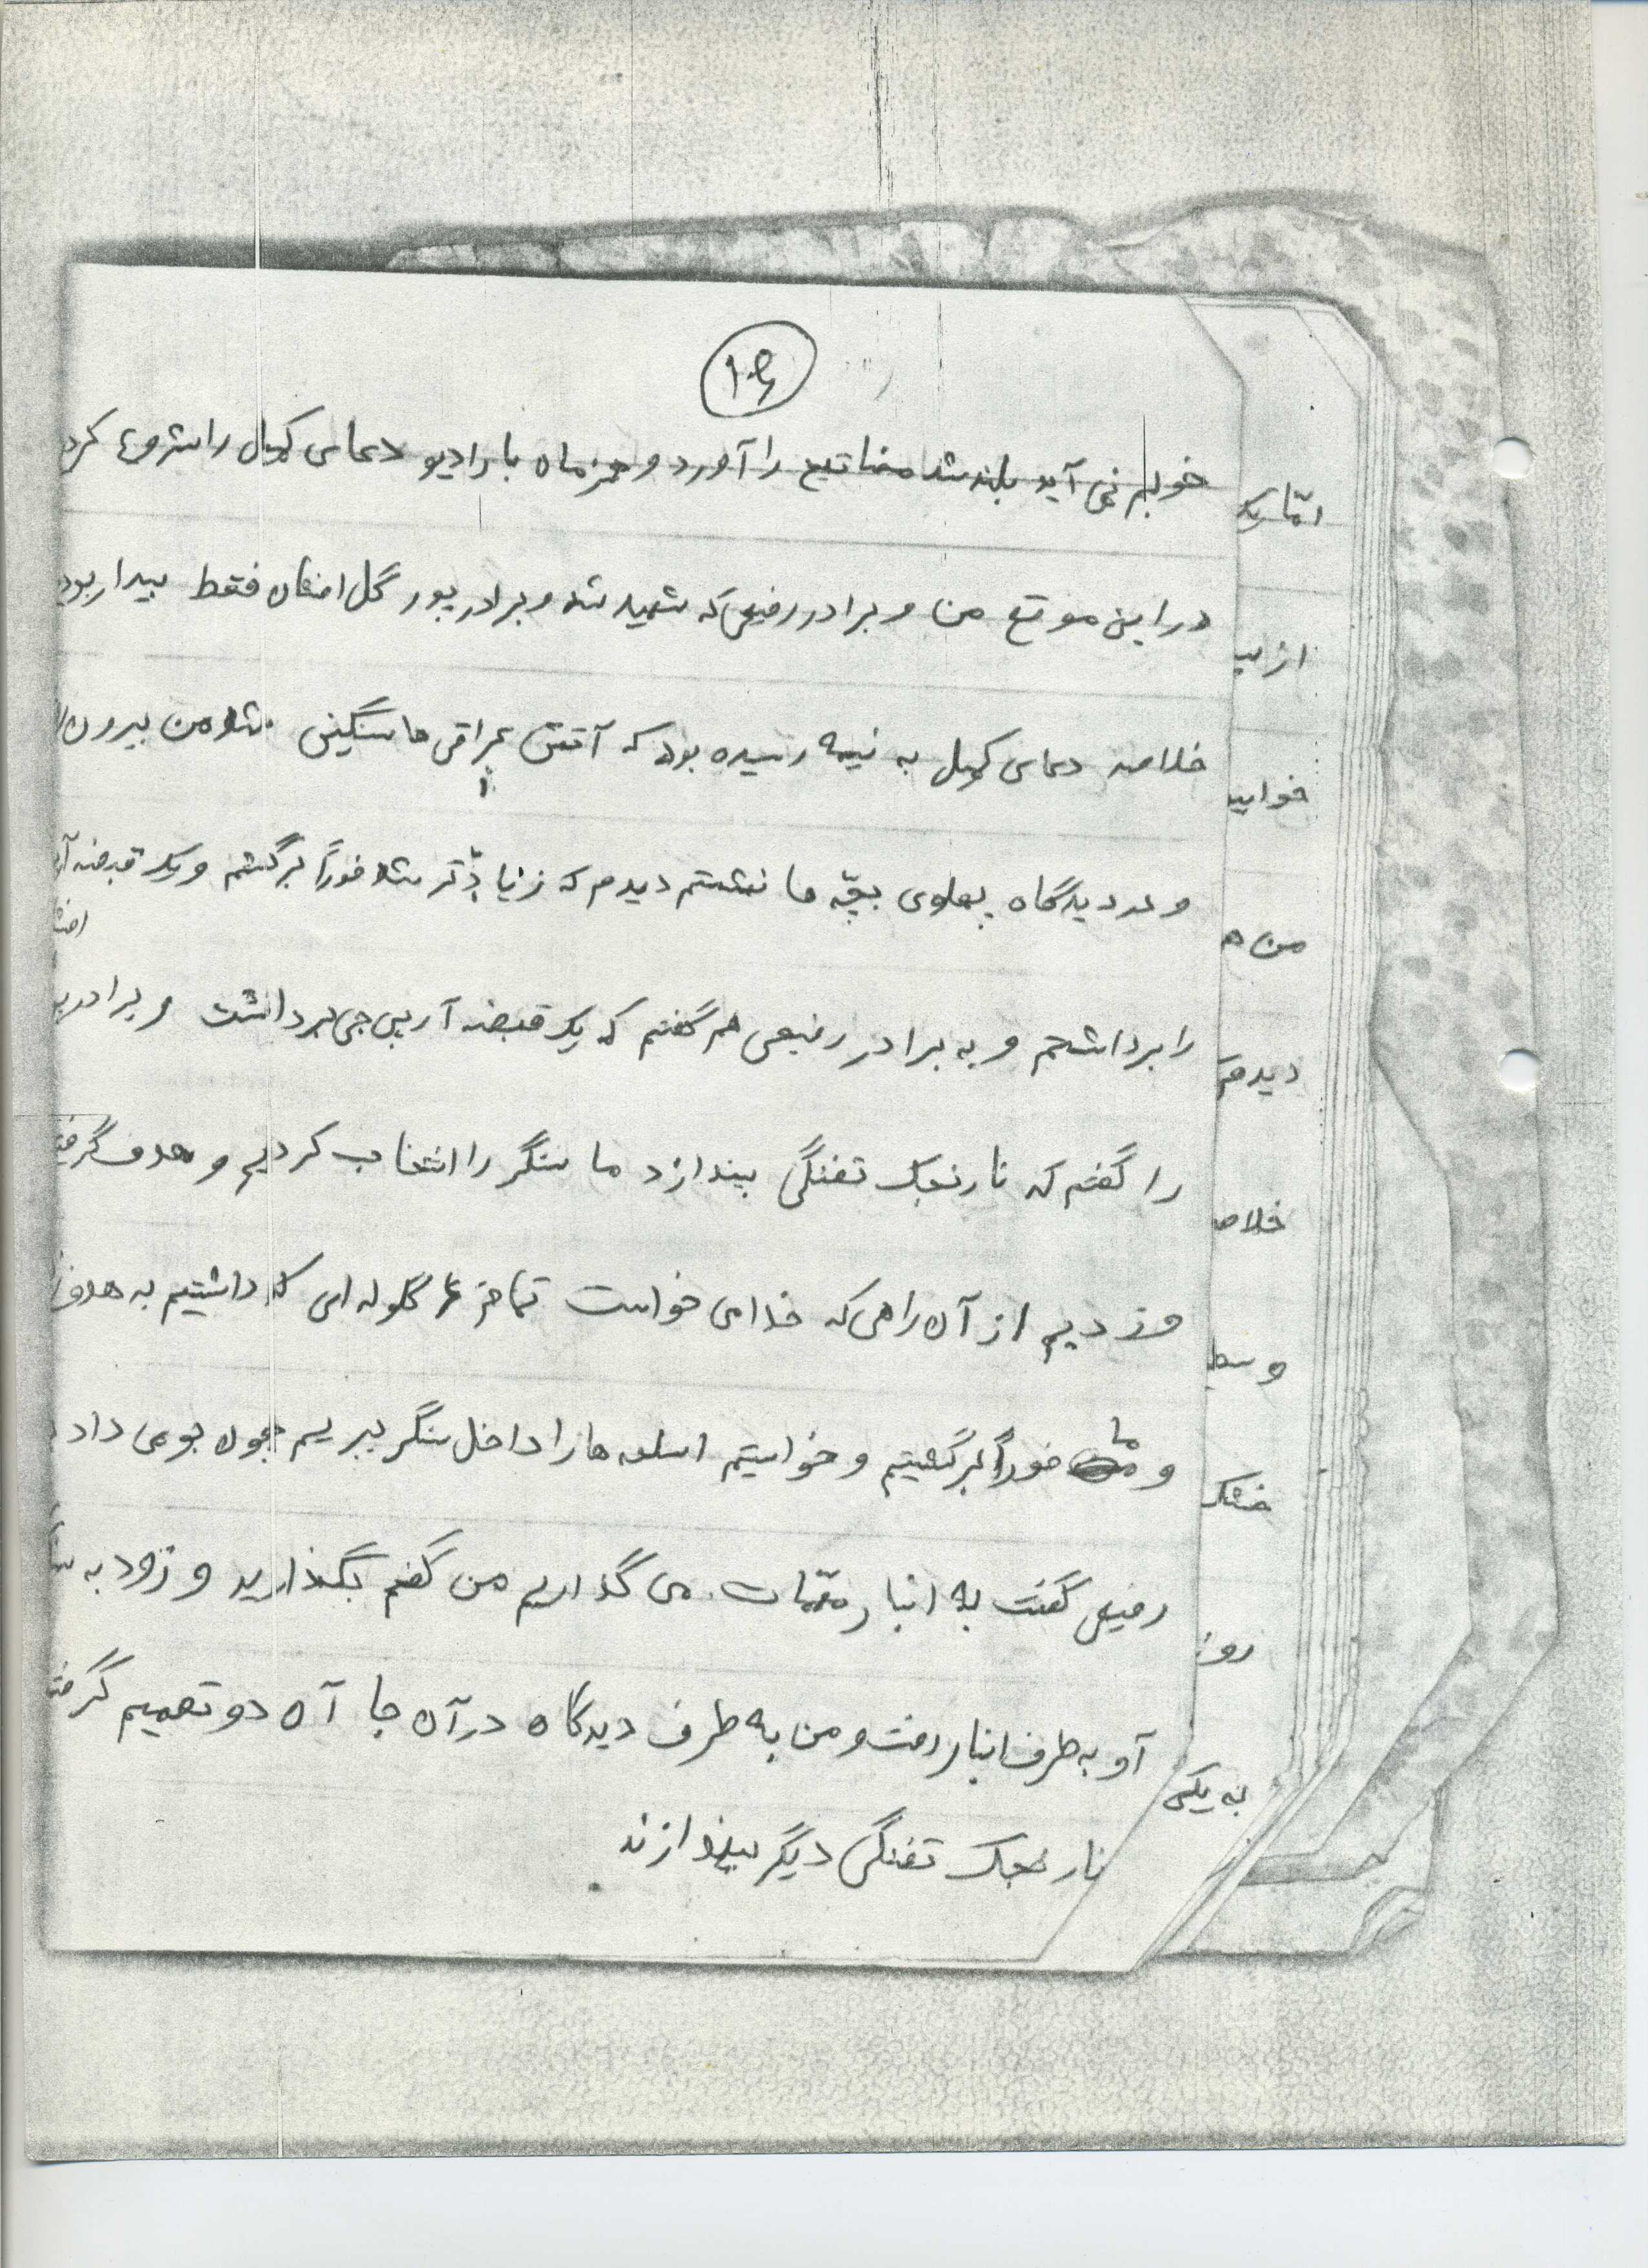 ۱۰۶
خوابم نمی آید بلند شد مفاتیح را آورد و همزمان با رادیو دعای کمیل را شروع کرد
در این موقع من و برادر رفیعی که شهید شد و برادر پور گل افشان فقط بیدار بود
خلاصه دعای کمیل به نیمه رسیده بود که آتش عراقی ها سنگین شد من بیرون
و در دیدگاه پهلوی بچّه ها نشستم دیدم که زیادتر شد فوراً برگشتم و یک قبضه آر
افشا
را برداشتم و به برادر رفیعی هم گفتم که یک قبضه آر پی جی برداشت و برادر پو
را گفتم که نارنجک تفنگی بیندازد ما سنگر را انتخاب کردیم و هدف گرفت
و زدیم از آن راهی که خدا می خواست تمام ۶ گلوله ای که داشتیم به هدف
و ما فوراً برگشتیم و خواستیم اسلحه ها را داخل سنگر ببریم چون بو می داد
رفیعی گفت به انبار مهمّات می گذاریم من گفتم بگذارید و زود به
او به طرف انبار رفت و من به طرف دیدگاه در آن جا آن دو تصمیم گرفت
نارنجک تفنگی دیگر بیندازند
امّا یک
از
خوابید
من ه
دیدم
خلاص
وسط
خشک
روز
به یکی